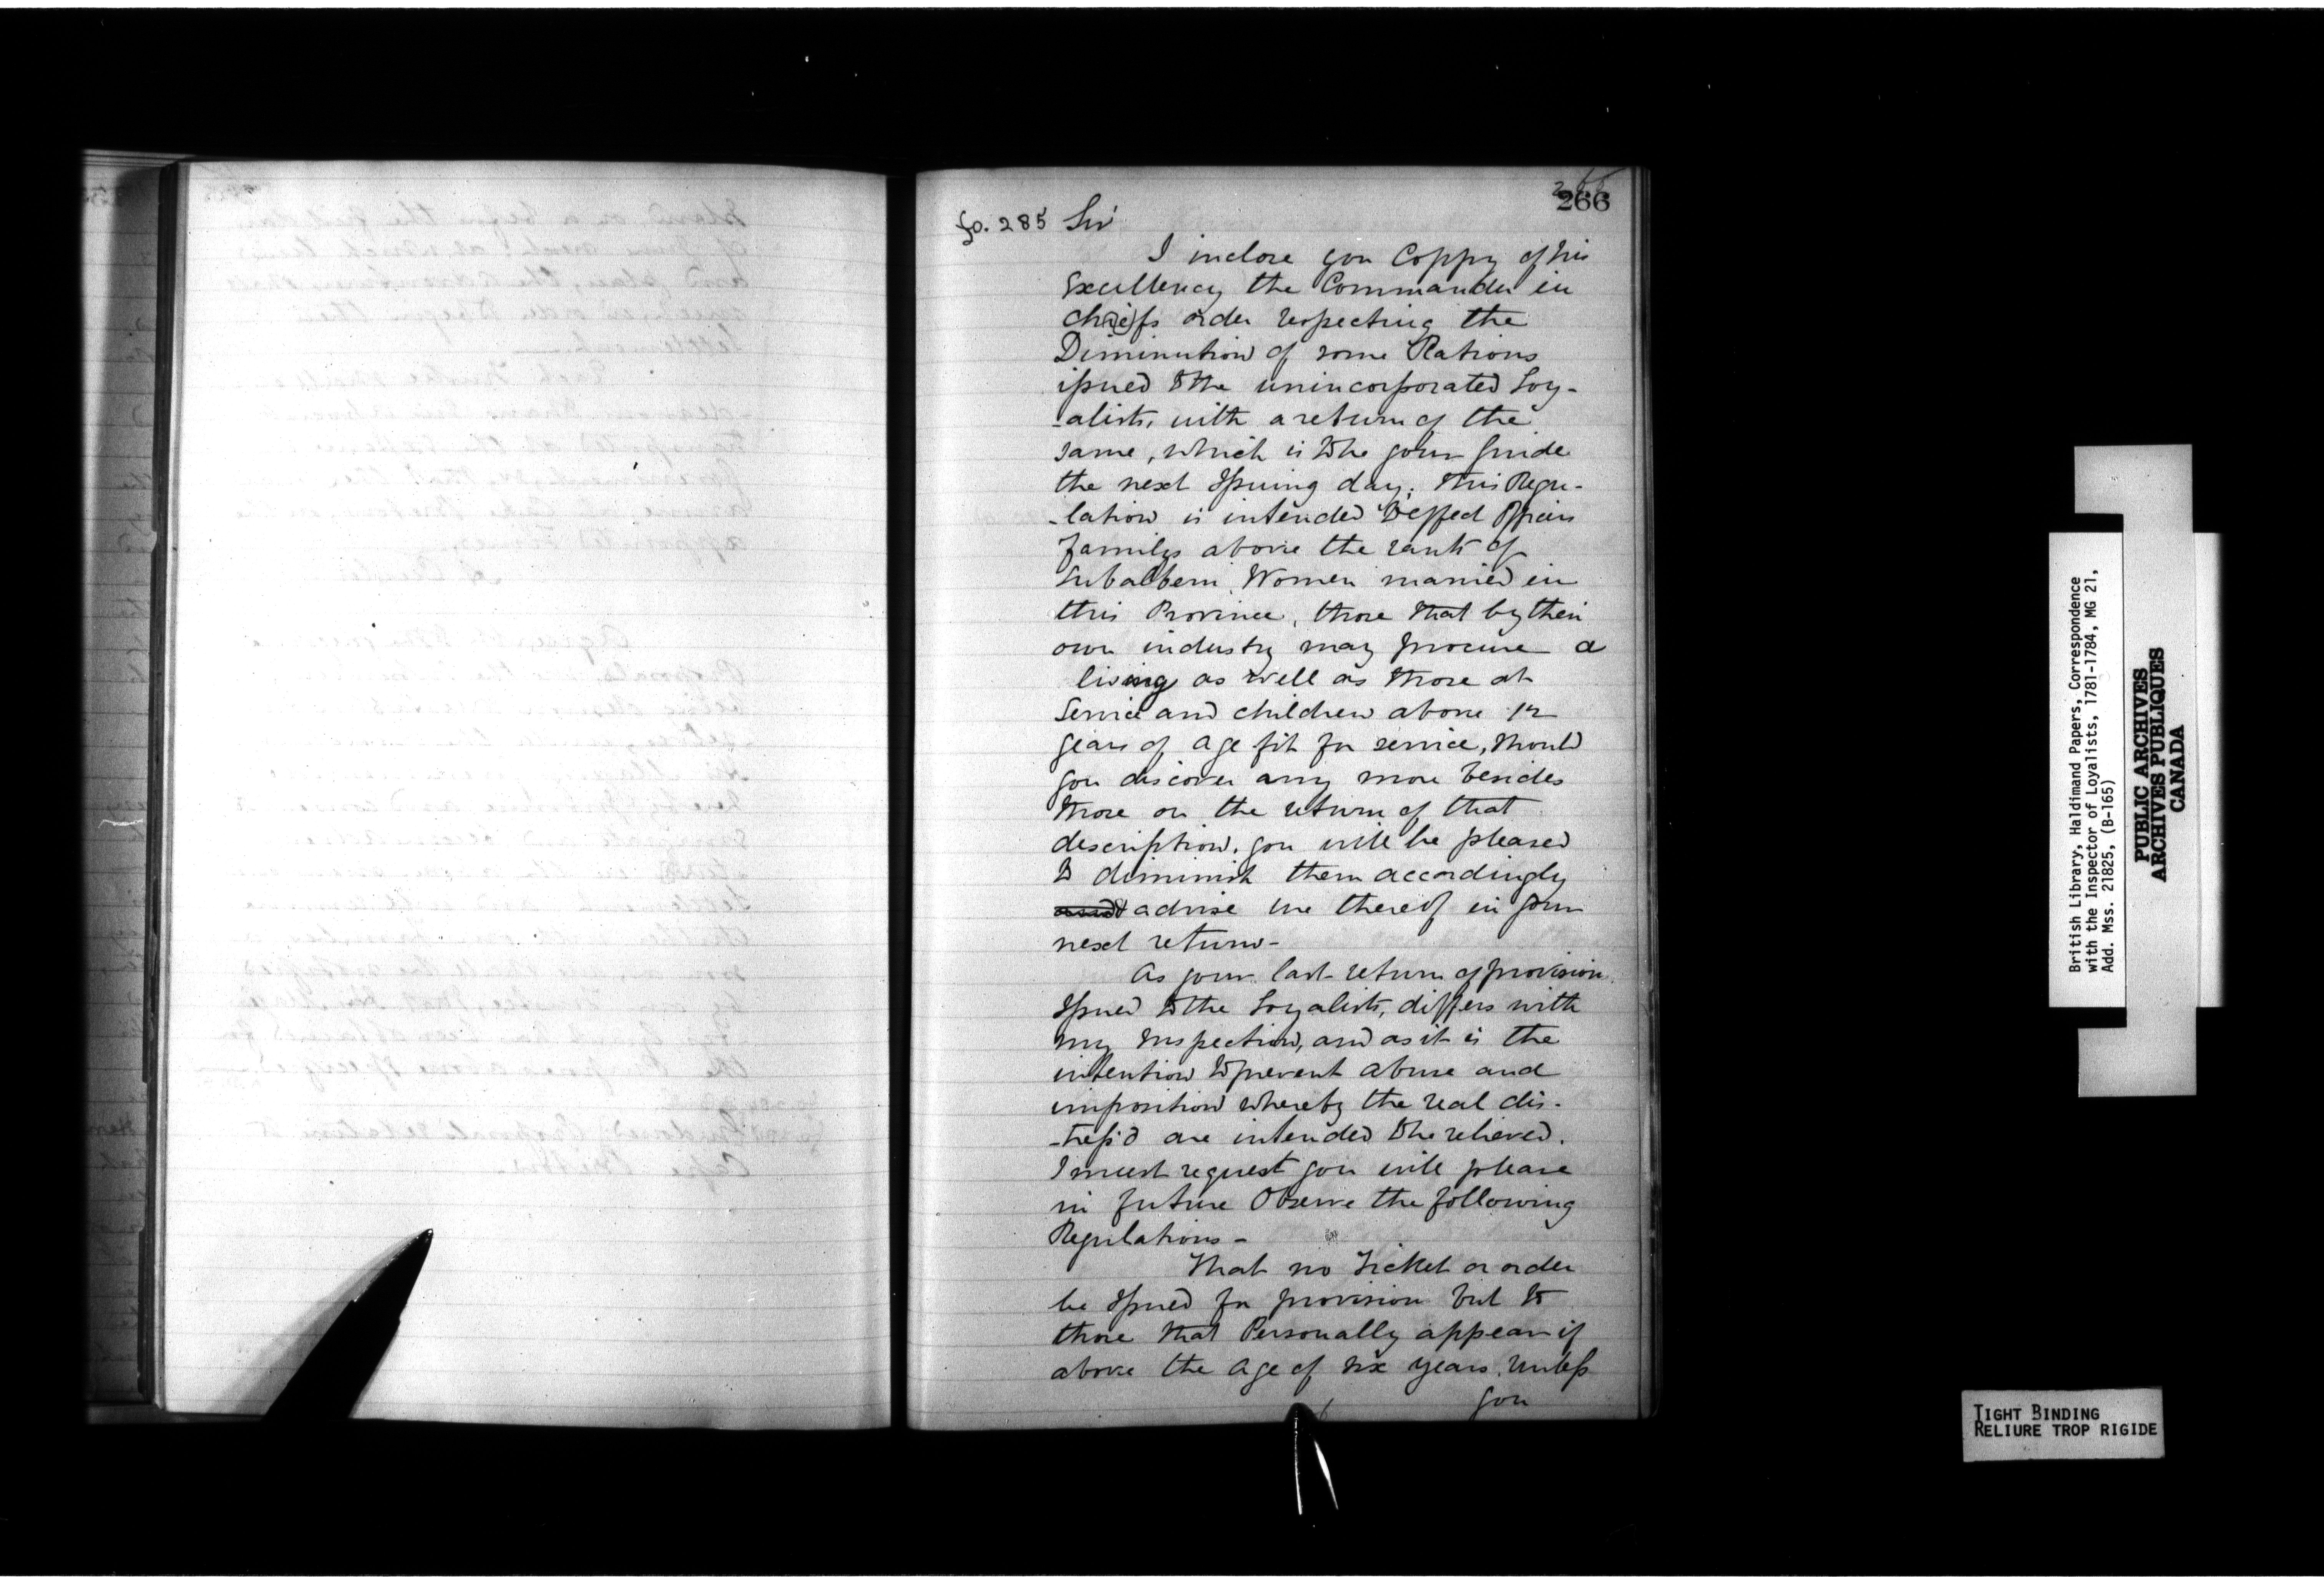 266
fo. 285 Sir
I inclose you Coppy of his
Excellency the Commander in
Ch(ie)fs order respecting the
Diminution of some Rations
issued to the unincorporated Loy-
-alists, with a return of the
same, which is to be your guide
the next Issuing day; this Regu-
-lation is intended to effect Officers
familys above the rank of
Subaltern, Women married in
this Province, those that by their
own industry may procure a
living as well as those at
Service and children above 12
years of age fit for service, should
you discover any more besides
those on the return of that
description, you will be pleased
to diminish them accordingly
advise me thereof in your
next return-
As your last return of provision
Issued to the Loyalists, differs with
my Inspection, and as it is the
intention to prevent abuse and
imposition whereby the real dis-
-tress'd are intended to be relieved.
I must request you will please
in future Observe the following
Regulations -
That no Ticket or order
be Issued for provision but to
those that Personally appear if
above the age of six years. Unless
you
British Library, Haldimand Papers, Correspondence
with the Inspector of Loyalists, 1781-1784, MG 21,
Add. Mss. 21825, (B-165)
PUBLIC ARCHIVES
ARCHIVES PUBLIQUES
CANADA
TIGHT BINDING
RELIURE TROP RIGIDE